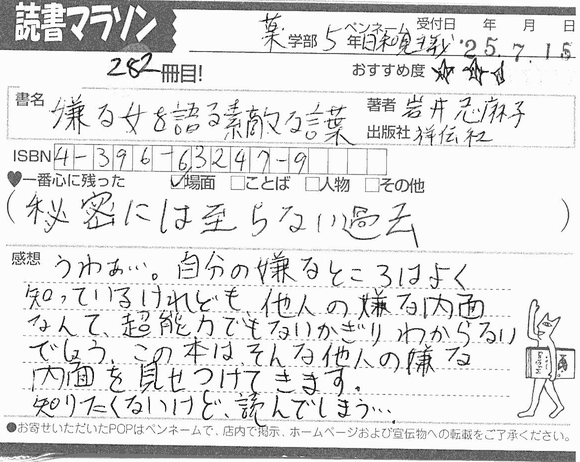 読書マラソン
282冊目!
薬学部 5年 ペンネーム 日和見主義 受付日 '25年 7月 15日
おすすめ度 ☆☆☆
書名 嫌な女を語る素敵な言葉
著者 岩井志麻子
出版社 祥伝社
ISBN 4-396-63247-9
♥一番心に残った ✓場面 □ことば □人物 □その他
(秘密には至らない過去)
感想 うわぁ…。自分の嫌なところはよく
知っているけれども、他人の嫌な内面
なんて、超能力でもないかぎりわからない
でしょう。この本はそんな他人の嫌な
内面を見せつけてきます。
知りたくないけど、読んでしまう…
●お寄せいただいたPOPはペンネームで、店内で掲示、ホームページおよび宣伝物への転載をご了承ください。